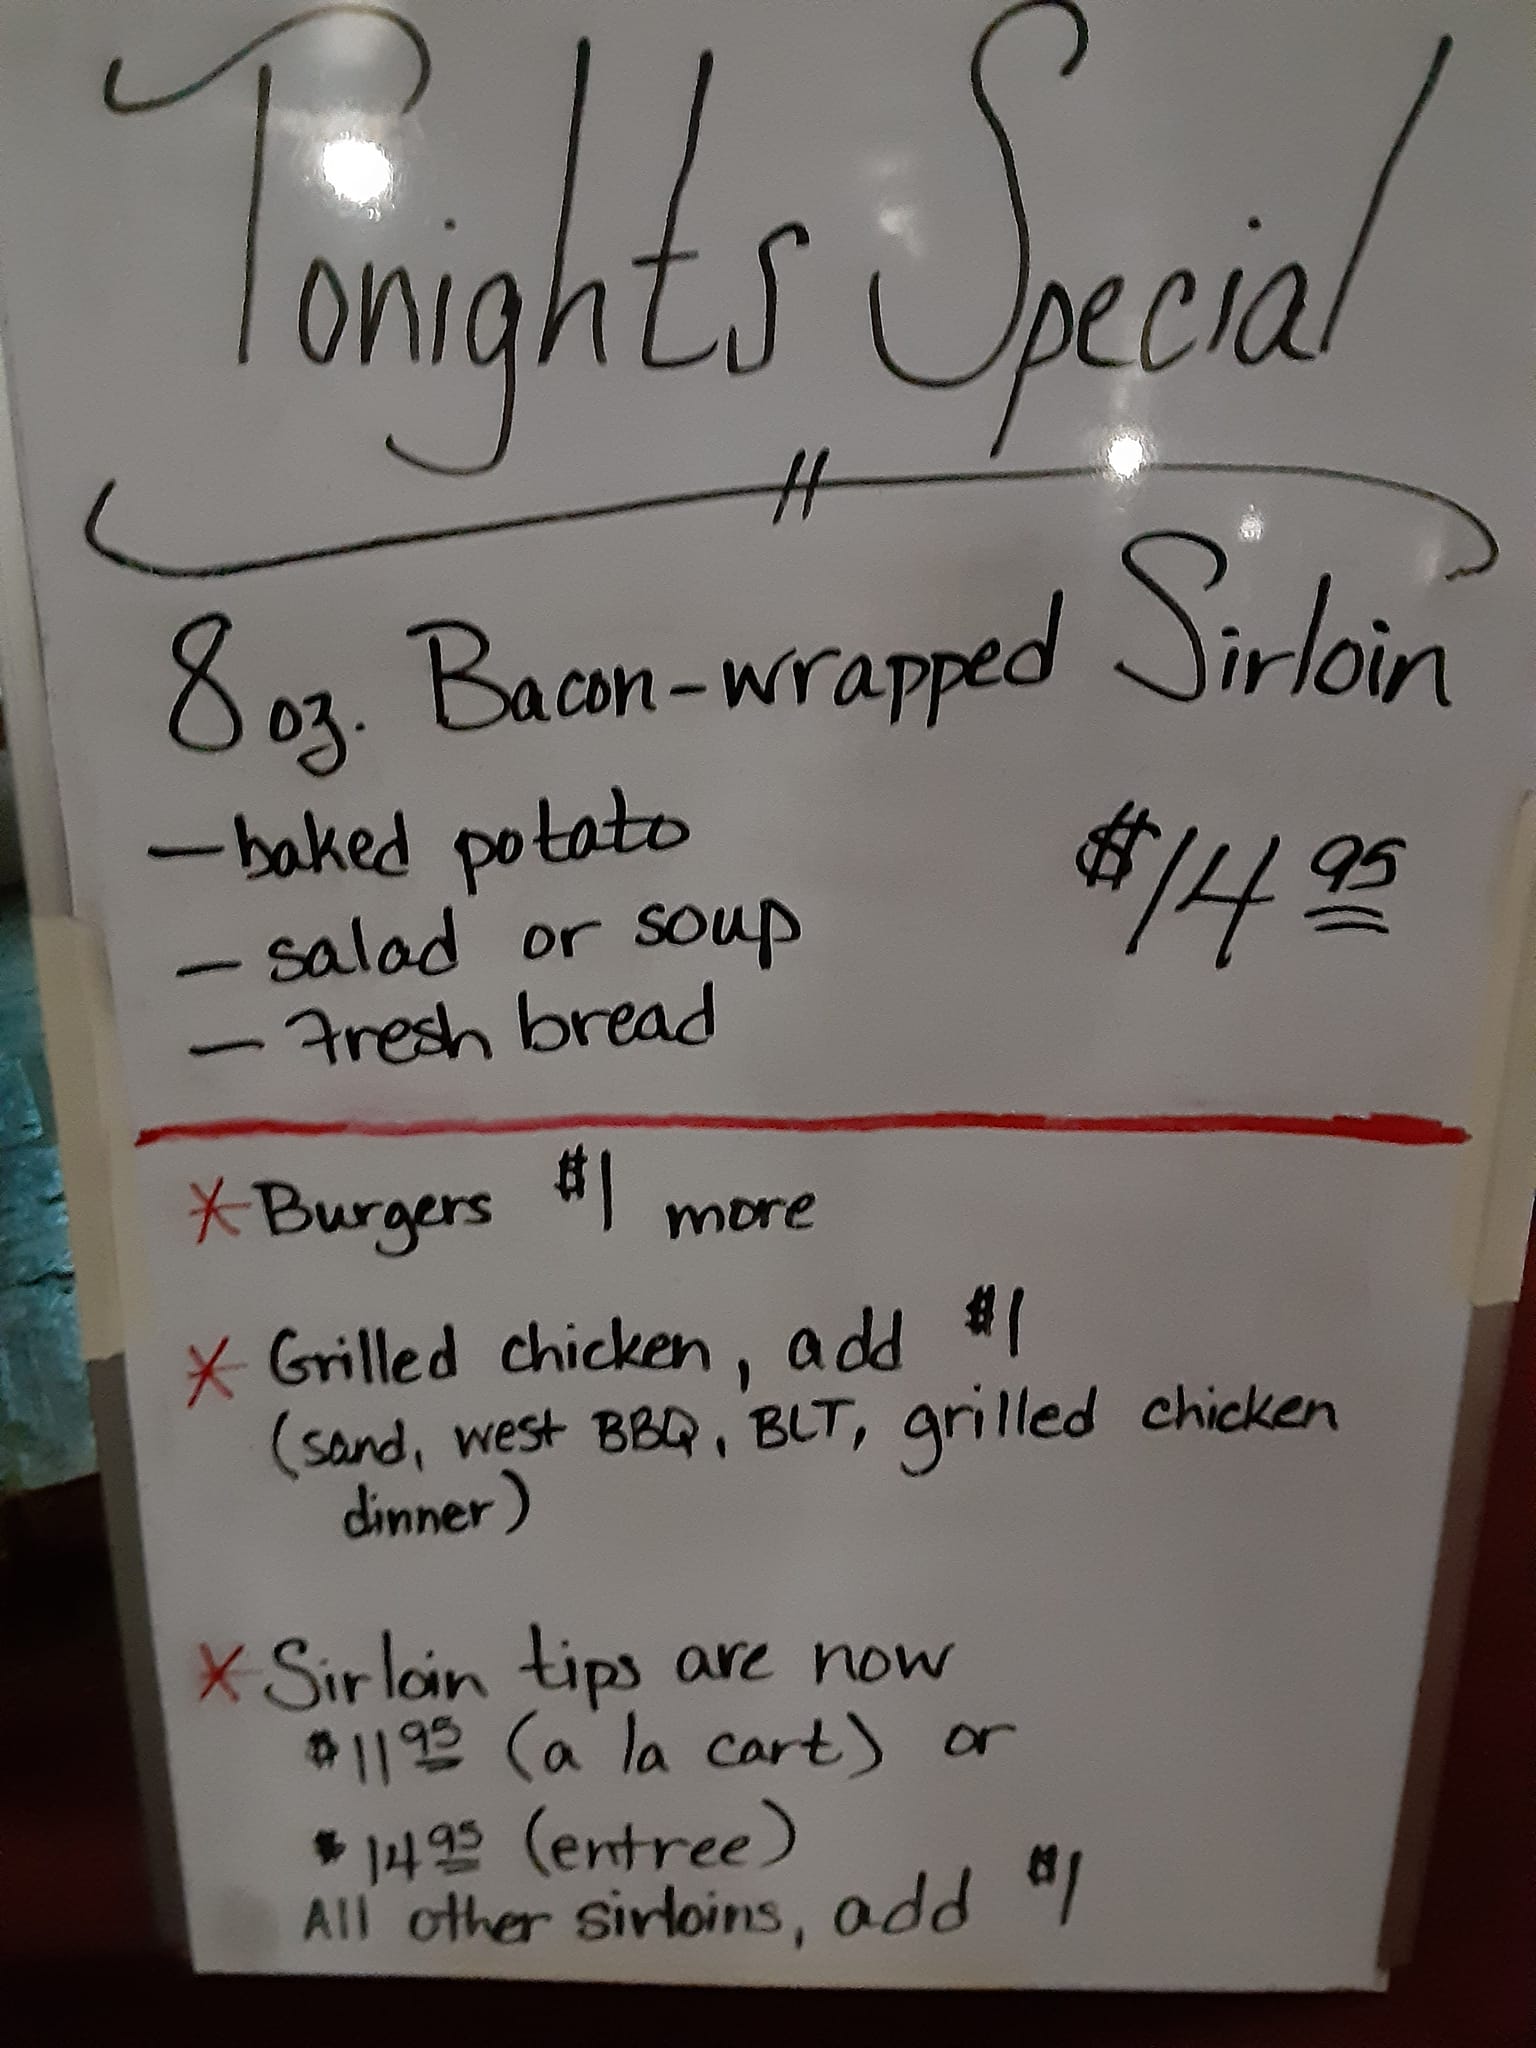 Tonights Special
8 oz. Bacon-wrapped Sirloin
- baked potato
$14 95
- salad or soup
- Fresh bread
* Burgers $1 more
* Grilled chicken, add $1
(sand, west BBQ, BLT, grilled chicken
dinner)
* Sirloin tips are now
$11 95 (a la cart) or
$14 95 (entree)
All other sirloins, add $1